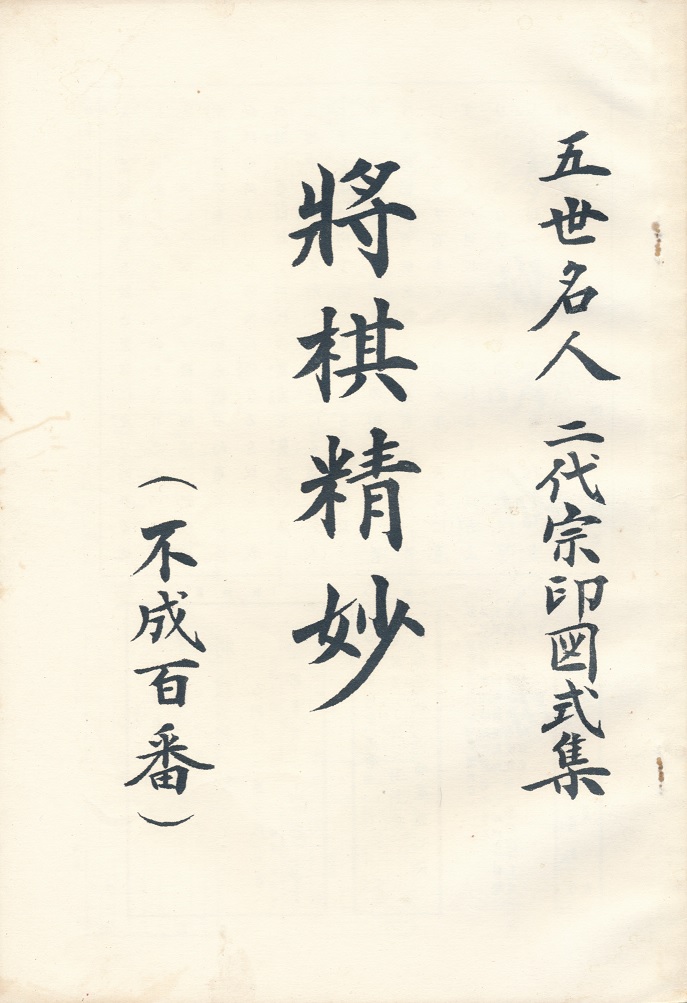 五世名人 二代宗印図式集
將棋精妙
（不成百番）